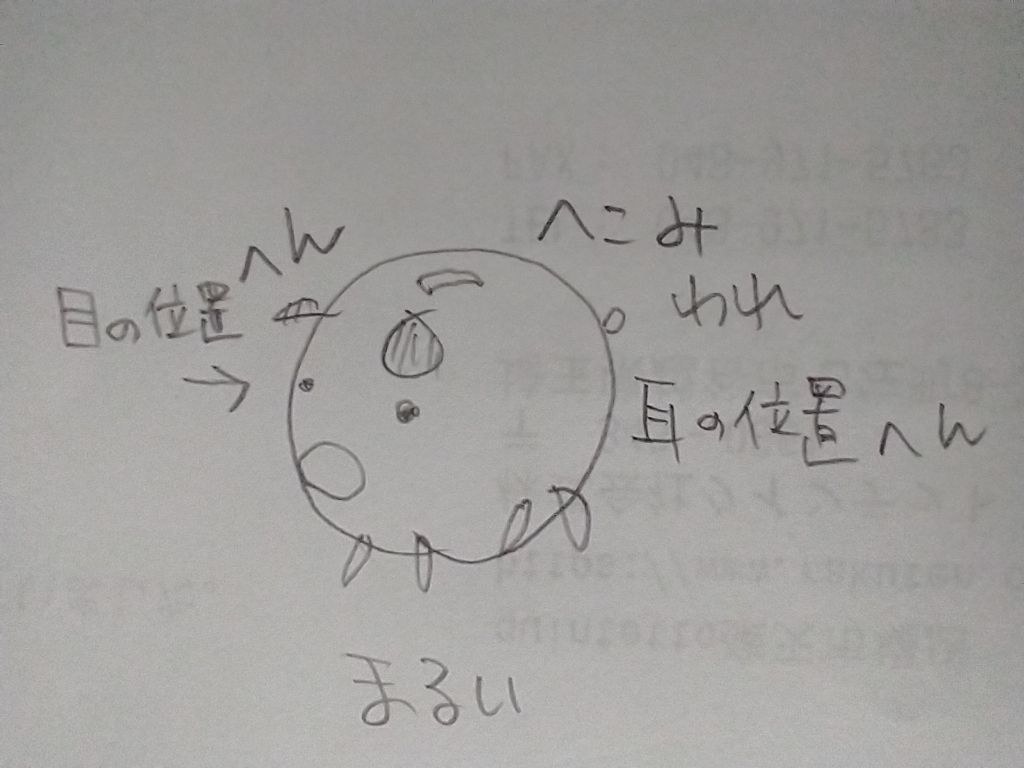 目の位置へん
→
へこみ
われ
耳の位置へん
まるい